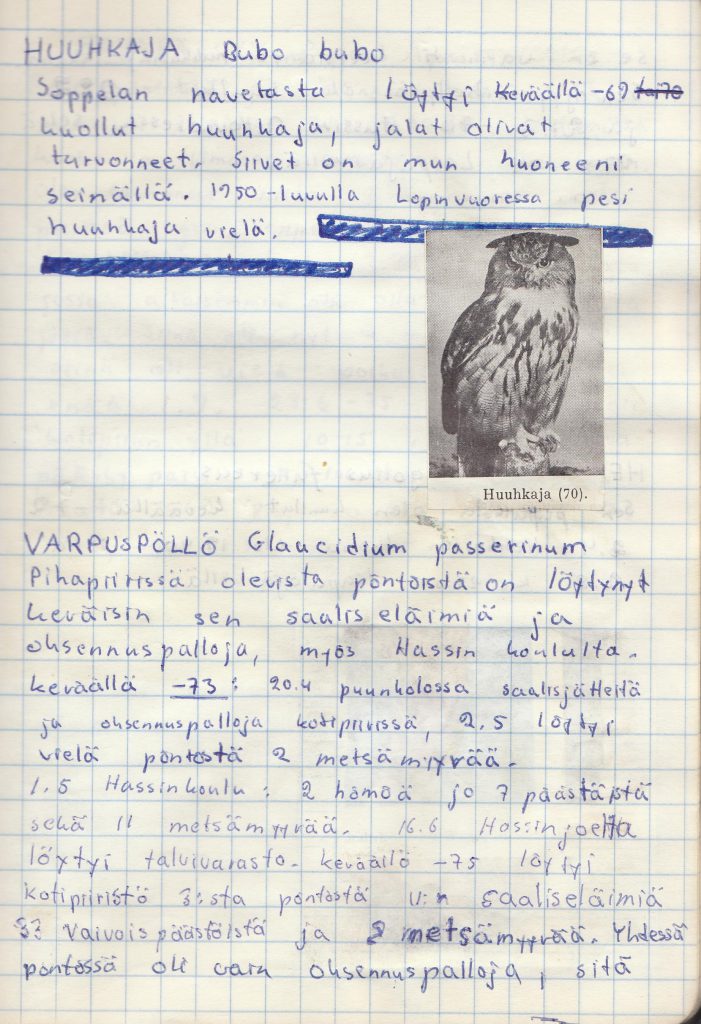 HUUHKAJA Bubo bubo
Soppelan navetasta löytyi keväällä -69
kuollut huuhkaja, jalat olivat
turvonneet. Siivet on mun huoneeni
seinällä. 1950-luvulla Lopinvuoressa pesi
huuhkaja vielä.
Huuhkaja (70).
VARPUSPÖLLÖ Glaucidium passerinum
Pihapiirissä olevista pöntöistä on löytynyt
keväisin sen saaliseläimiä ja
oksennuspalloja, myös Hassin koululta.
keväällä -73: 20.4 puunkolossa saalisjätteitä
ja oksennuspalloja kotipiirissä, 2.5 löytyi
vielä pöntöstä 2 metsämyyrää.
1.5 Hassinkoulu: 2 hömöä ja 7 päästäistä
sekä 11 metsämyyrää. 16.6 Hassinjoelta
löytyi talvivarasto. keväällä -75 löytyi
kotipiiristö 3:sta pöntöstä 4:n saaliseläimiä
33 vaivoispäästöistä ja 2 metsämyyrää. Yhdessä
pöntössä oli vain oksennuspalloja, sitä